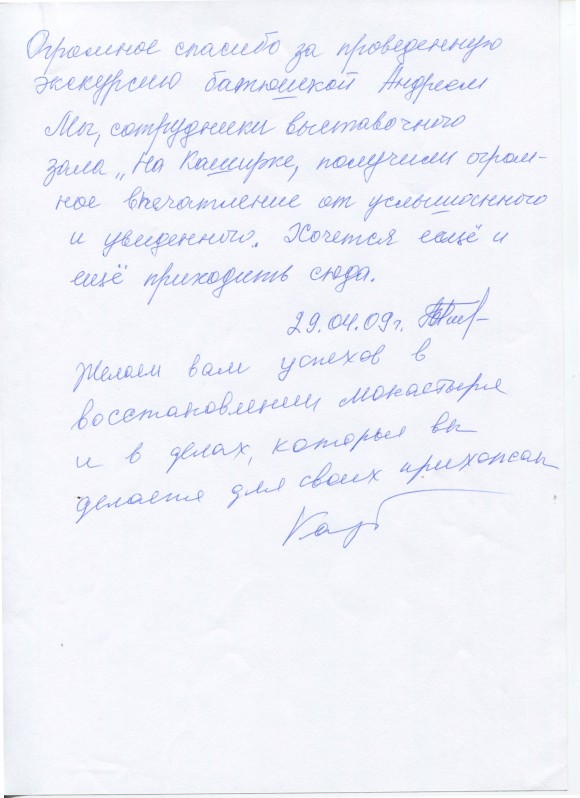 Огромное спасибо за проведенную
экскурсию батюшкой Андреем
Мы, сотрудники выставочного
зала „На Каширке, получили огром-
ное впечатление от услышанного
и увиденного. Хочется ещё и
ещё приходить сюда.
29.04.09г.
Желаем вам успехов в
восстановлении монастыря
и в делах, которые вы
делаете для своих прихожан